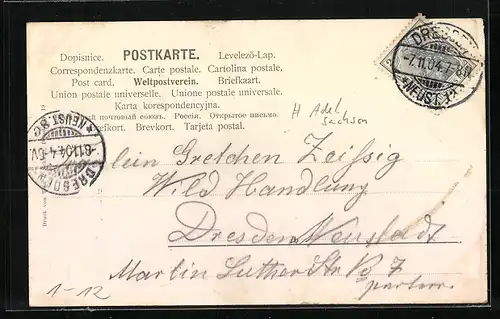 Dopisnice. POSTKARTE. Levelező-Lap.
Correspondenzkarte. Carte postale. Cartolina postale.
Post card. Weltpostverein. Briefkaart.
Union postale universelle. Unione postale universale.
Karta korespondencyjna.
почтовый союзъ. Россія. Открытое письмо.
Brefkort. Brevkort. Tarjeta postal.
H Adel
Sachsen
DRESDEN
7.11.04.7-8
NEUST.
NEUST.
6.11.04.4-5V.
DRESDEN
lein Gretchen Zeissig
Wild Handlung
Dresden Neustadt
Martin Luther Str No 7
parterr.
1-12